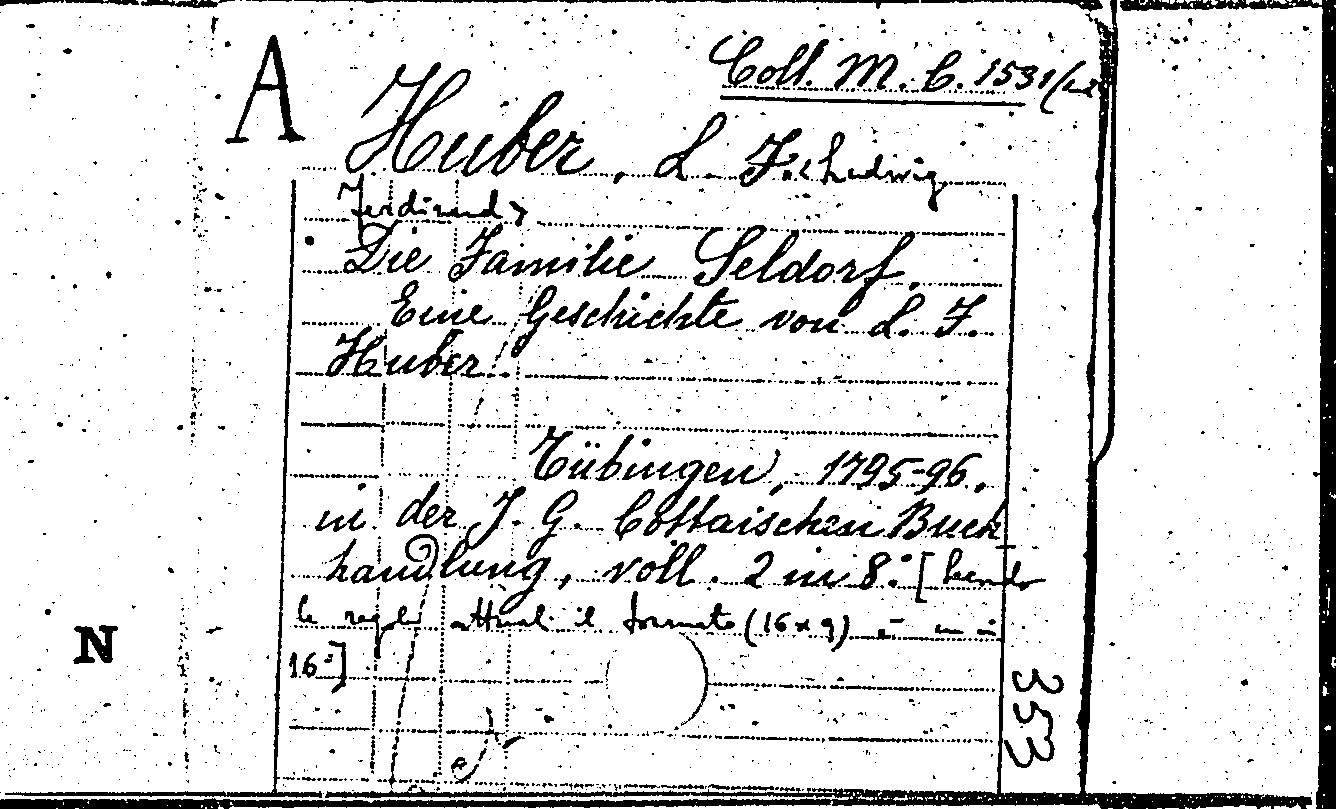 A
Coll. M. C. 1531/
Huber, L. F. <Ludwig
Ferdinand>
Die Familie Seldorf.
Eine Geschichte von L. F.
Huber.
Tübingen, 1795-96,
in der J. G. Cottaischen Buch
handlung, voll. 2 in 8.° [
le regole attuali il formato (16x9) è
16°]
N
353